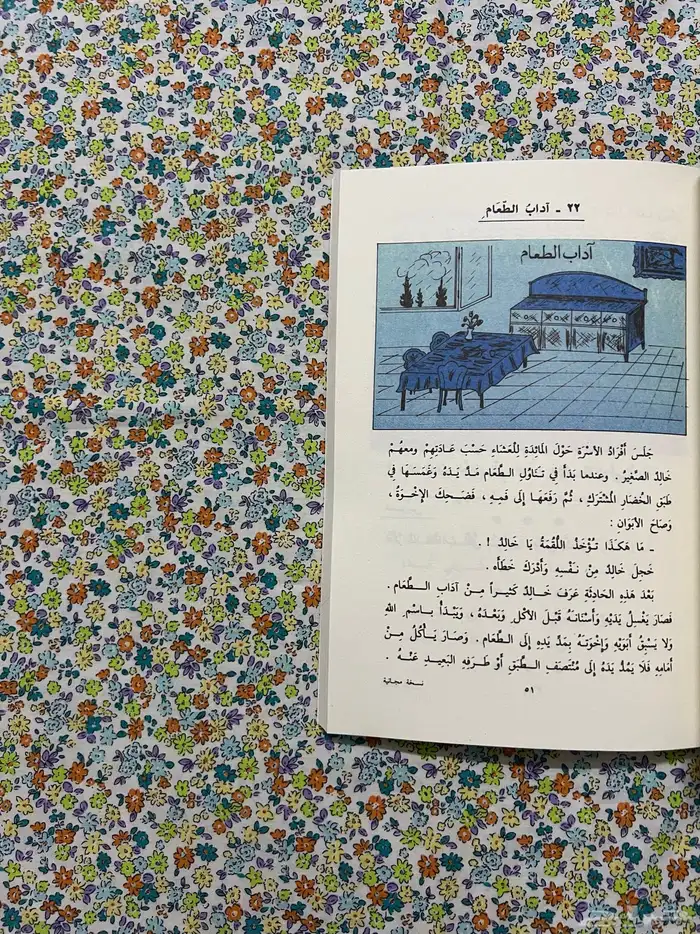 ٢٢ - آدابُ الطَّعَامِ
آداب الطعام
جَلَسَ أَفْرَادُ الأُسْرَةِ حَوْلَ المَائِدَةِ لِلْعَشَاءِ حَسْبَ عَادَتِهِمْ ومعهُمْ
خَالِدٌ الصَّغِيرُ . وعندما بَدَأَ في تَنَاوُلِ الـطَّعَامِ مَدَّ يَدَهُ وَغَمَسَهَا في
طَبَقِ الخُضَارِ المُشْتَرَكِ ، ثُمَّ رَفَعَهَا إِلَى فَمِهِ ، فَضَحِكَ الإِخْوَةُ ،
وَصَاحَ الأَبَوَانِ :
ـ مَا هَكَذَا تُؤْخَذُ اللُّقْمَةُ يَا خَالِدُ ! .
خَجِلَ خَالِدٌ مِنْ نَفْسِهِ وَأَدْرَكَ خَطَأَهُ .
بَعْدَ هَذِهِ الحَادِثَةِ عَرَفَ خَالِدٌ كَثِيراً مِنْ آدَابِ الـطَّعَامِ .
فَصَارَ يَغْسِلُ يَدَيْهِ وَأَسْنَانَهُ قَبْلَ الأَكْلِ وَبَعْدَهُ ، وَيَبْدَأُ بِاسْمِ اللهِ
وَلَا يَسْبِقُ أَبَوَيْهِ وَإِخْوَتَهُ بِمَدِّ يَدِهِ إِلَى الطَّعَامِ . وَصَارَ يَأْكُلُ مِنْ
أَمَامِهِ فَلَا يَمُدُّ يَدَهُ إِلَى مُنْتَصَفِ الـطَّبَقِ أَوْ طَرَفِهِ البَعِيدِ عَنْهُ .
نسخة مجانية
٥١